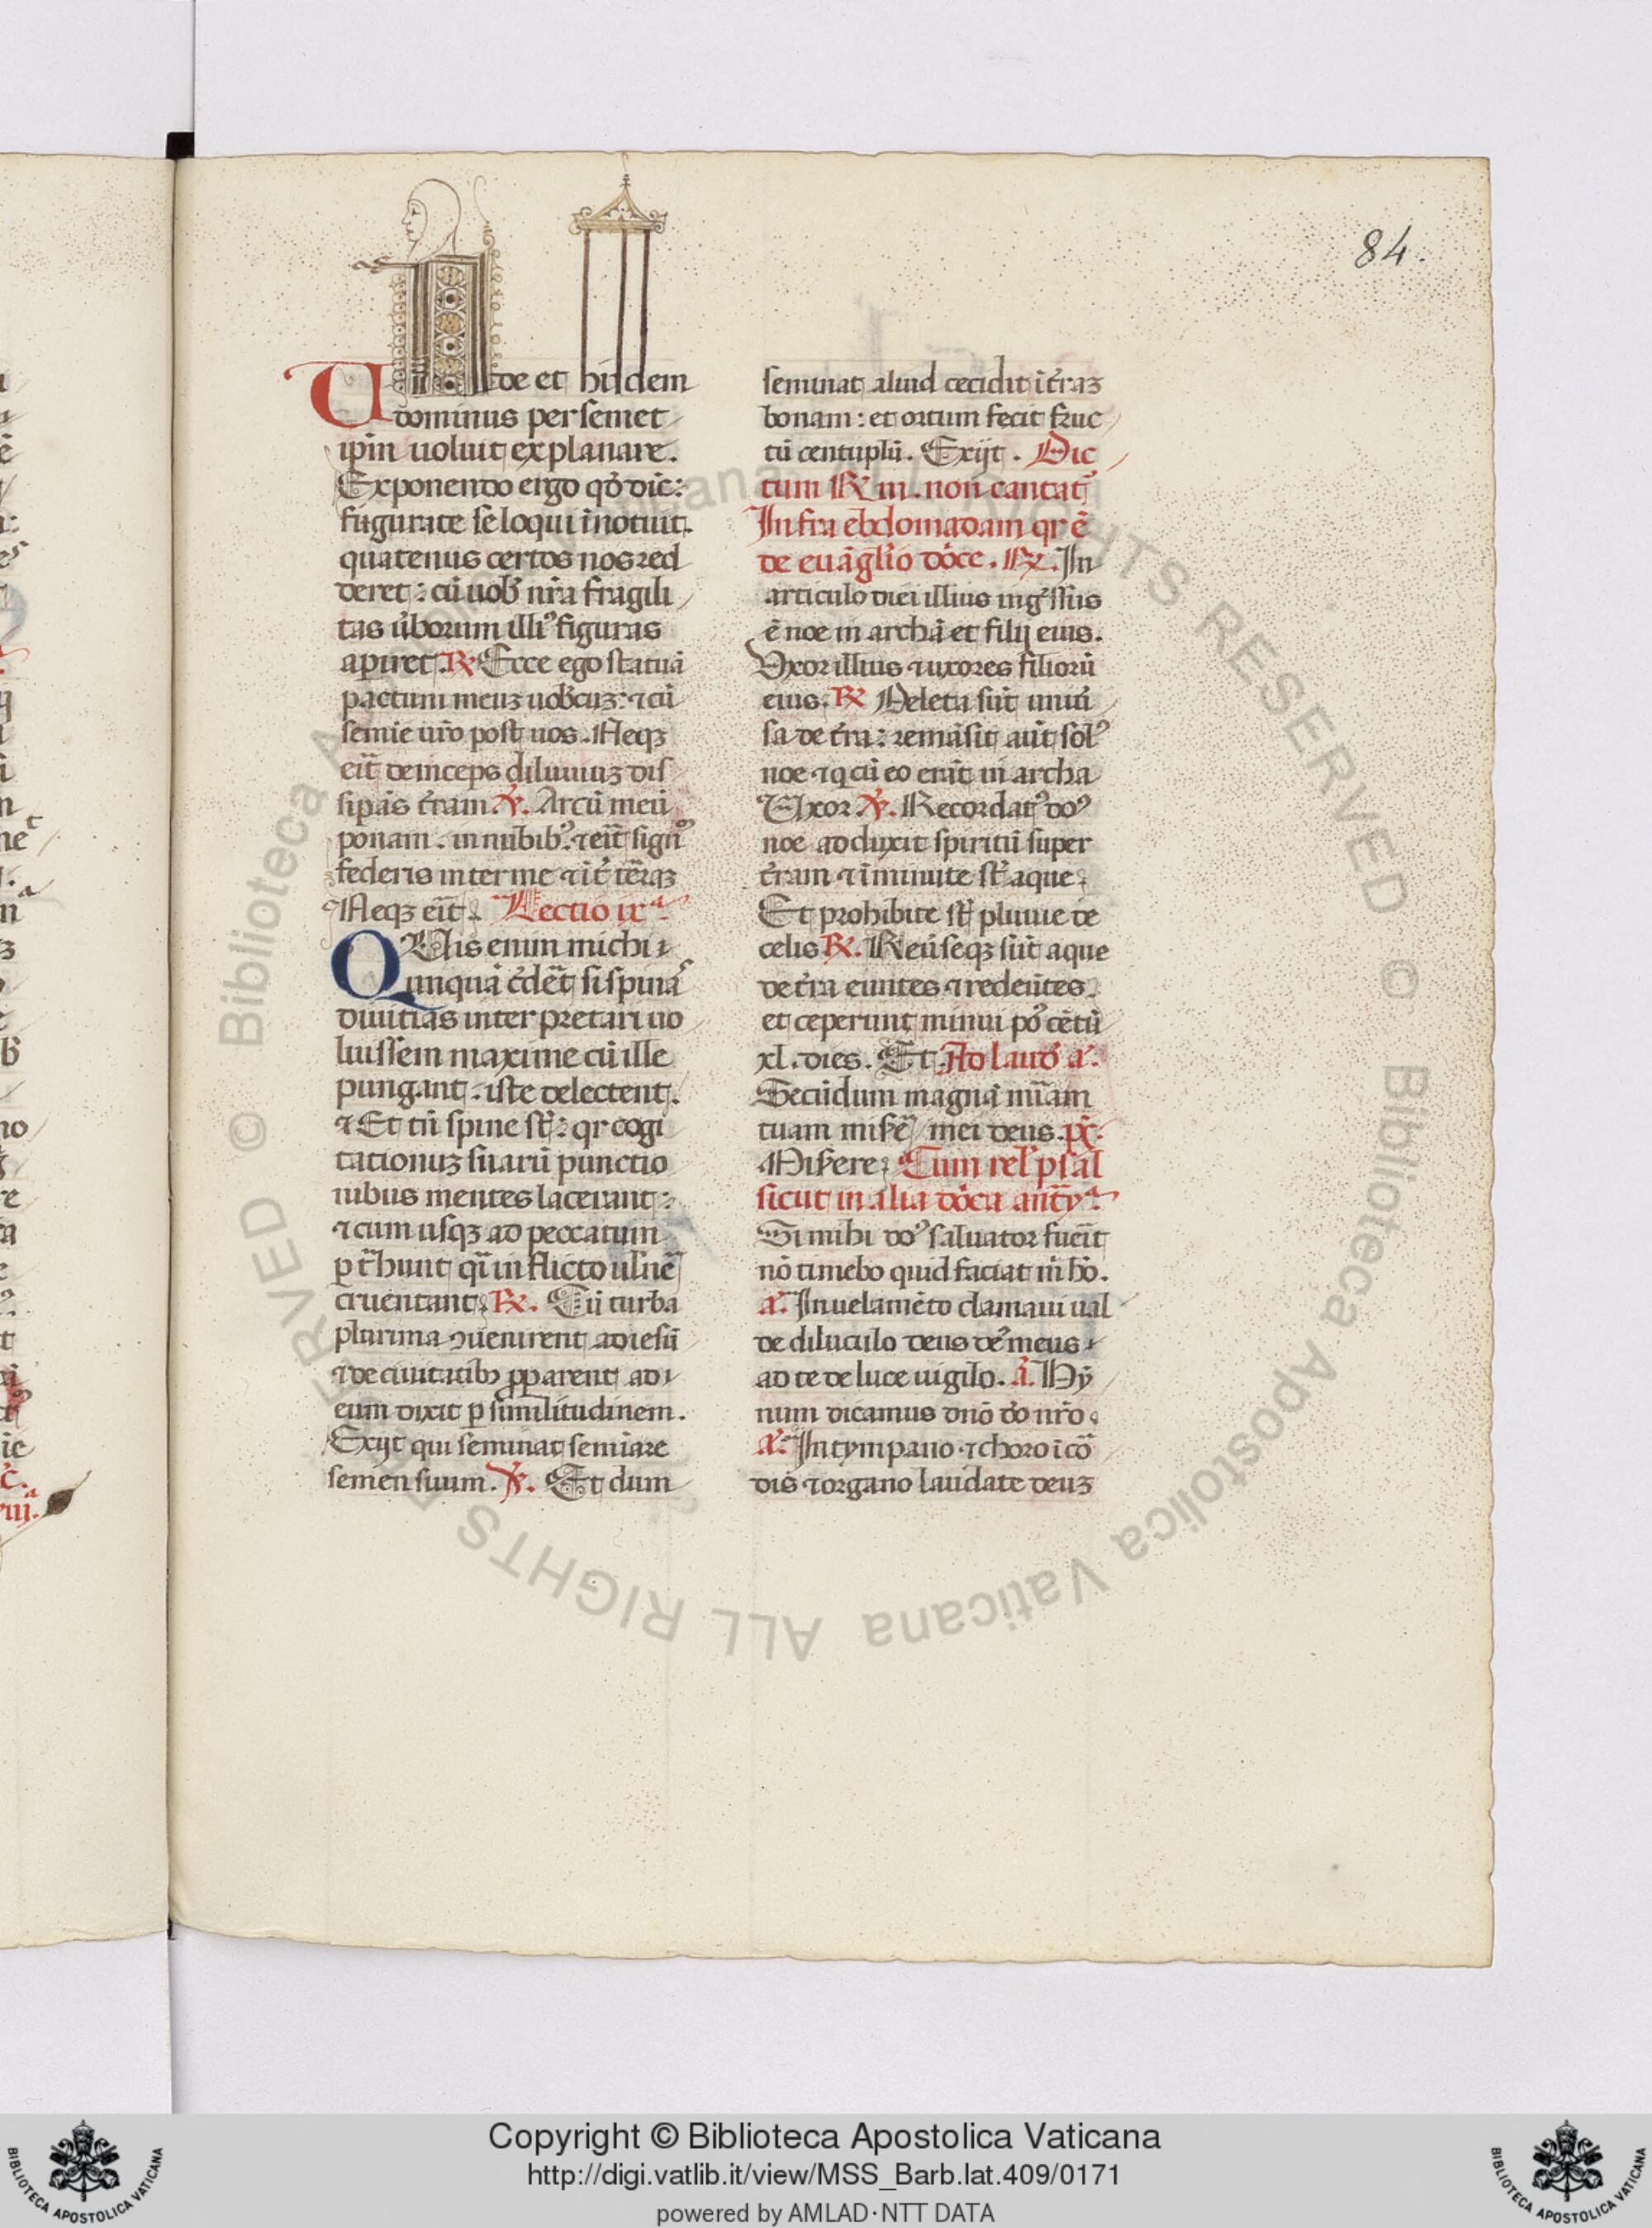 84.
Unde et hisdem
dominus per semet
ip̄m uoluit explanare.
Exponendo ergo qd̓ dic̄:
figurate se loqui īnotuit.
quatenus certos nos red
deret: cū uob̓ nr̄a fragili
tas ũborum illi᾽ figuras
apiret. ℟ Ecce ego statuā
pactum meuꝫ uob̓cuꝫ: ⁊ cū
semīe ur̄o post uos. Neqꝫ
eīt deinceps diluuiuꝫ dis
sipās t̄ram. ℣. Arcū meū
ponam in nubib᾽: ⁊ eīt signū
federis inter me ⁊ īt̄ tēraꝫ
Neqꝫ eīt. Lectio ixᵃ.
QUis enim michi
unquā c̓det̄ si spinas
diuitias inter pretari uo
luissem maxime cū ille
pungant: iste delectent.
⁊ Et tn̄ spine st̄: qr cogi
tationuꝫ suarū punctio
nibus mentes lacerant:
⁊ cum usqꝫ ad peccatum
p t̄hunt q̄i inflicto uln̄e
cruentant. ℟. Cū turba
plurima ꝯuenirent ad iesū
⁊ de ciuitatibꝫ ꝓparent ad
eum dixit ꝑ similitudinem.
Exijt qui seminat semīare
semen suum. ℣. Et dum
seminat aliud cecidit ī t̄raꝫ
bonam: et ortum fecit fruc
tū centuplū. Exijt. Dic
tum ℟ m. non cantat᾽
Infra ebdomadam qr ē
de euāglio dōce. ℟. In
articulo diei illius ing̓ssus
ē noe in archā et filij eius.
Uxor illius ⁊ uxores filiorū
eius. ℟ Deleta sūt uniũ
sa de t̄ra: remāsit aūt sol᾽
noe ⁊ q cū eo erāt in archa
Uxor ℣. Recordat᾽ do᾽
noe adduxit spiritū super
t̄ram ⁊ īminute st̄ aque.
Et prohibite st̄ pluuie de
celis ℟. Reũseqꝫ sūt aque
de t̄ra euntes ⁊ redeūtes.
et ceperunt minui po᾽ cētū
xl. dies. Et. Ad laud̓ aᵃ.
Secūdum magnā mīam
tuam misēr mei deus. ps̄.
Misere. Cum rel̓ psal
sicut in alia dōca. antyᵃ.
Si mihi do᾽ saluator fueīt
nō timebo quid faciat m̄ hō.
aᵃ. In uelamēto clamaui ual
de diluculo deus de᾽ meus
ad te de luce uigilo. aᵃ. Hȳ
num dicamus dnō dō nr̄o.
aᵃ. In tympano ⁊ choro ī cō
dis ⁊ organo laudate deuꝫ
© Biblioteca Apostolica Vaticana ALL RIGHTS RESERVED © Biblioteca Apostolica Vaticana ALL RIGHTS RESERVED
Copyright © Biblioteca Apostolica Vaticana
http://digi.vatlib.it/view/MSS_Barb.lat.409/0171
powered by AMLAD·NTT DATA
BIBLIOTECA APOSTOLICA VATICANA
BIBLIOTECA APOSTOLICA VATICANA